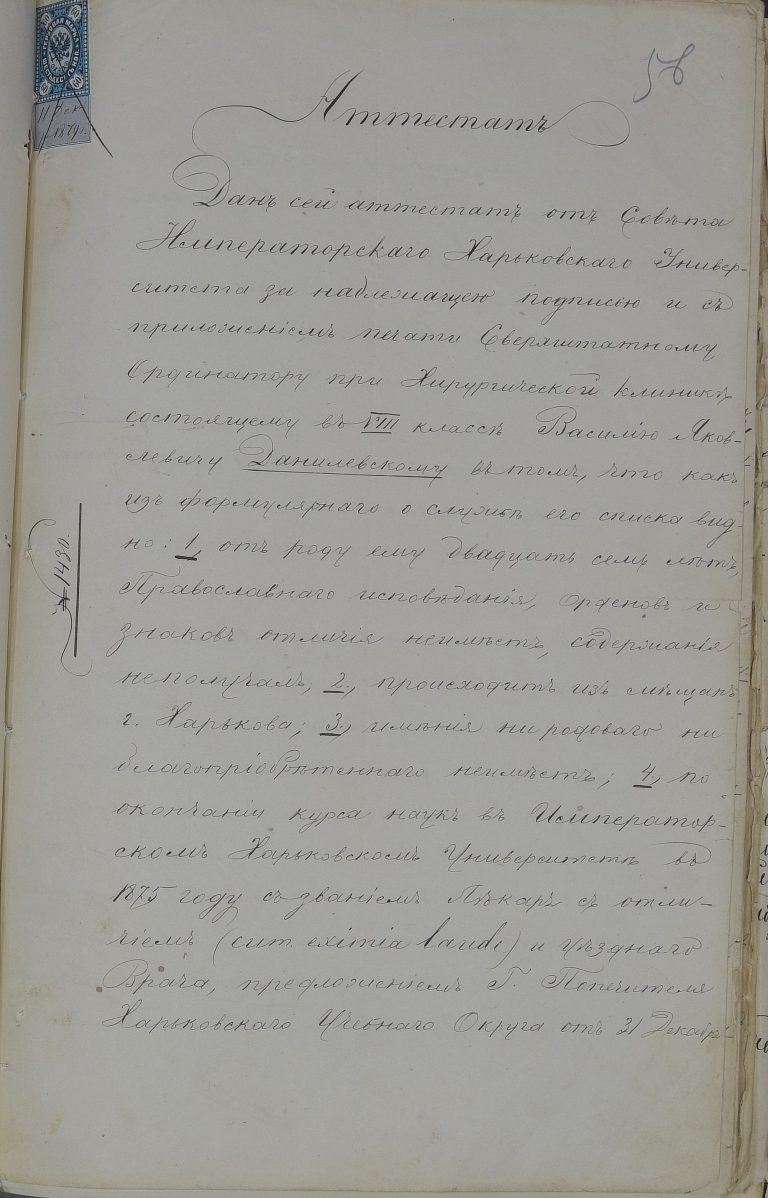 58
11 Дек
1879 г.
Аттестатъ
Данъ сей аттестатъ отъ Совѣта
Императорскаго Харьковскаго Универ-
ситета за надлежащею подписью и съ
приложеніемъ печати Сверхштатному
Ординатору при Хирургической клиникѣ
состоящему въ VIII классѣ Василію Яков-
левичу Данилевскому въ томъ, что какъ
изъ формулярнаго о службѣ его списка вид-
но: 1, отъ роду ему двадцать семь лѣтъ,
Православнаго исповѣданія, орденовъ и
знаковъ отличія неимѣетъ, содержанія
неполучалъ, 2, происходитъ изъ мѣщанъ
г. Харькова; 3, имѣнія ни родоваго ни
благопріобрѣтеннаго неимѣетъ; 4, по
окончаніи курса наукъ въ Император-
скомъ Харьковскомъ Университетѣ въ
1875 году съ званіемъ Лѣкаръ съ отли-
чіемъ (cum eximia laude) и уѣзднаго
Врача, предложеніемъ Г. Попечителя
Харьковскаго Учебнаго Округа отъ 31 Декабр-
№ 1430.